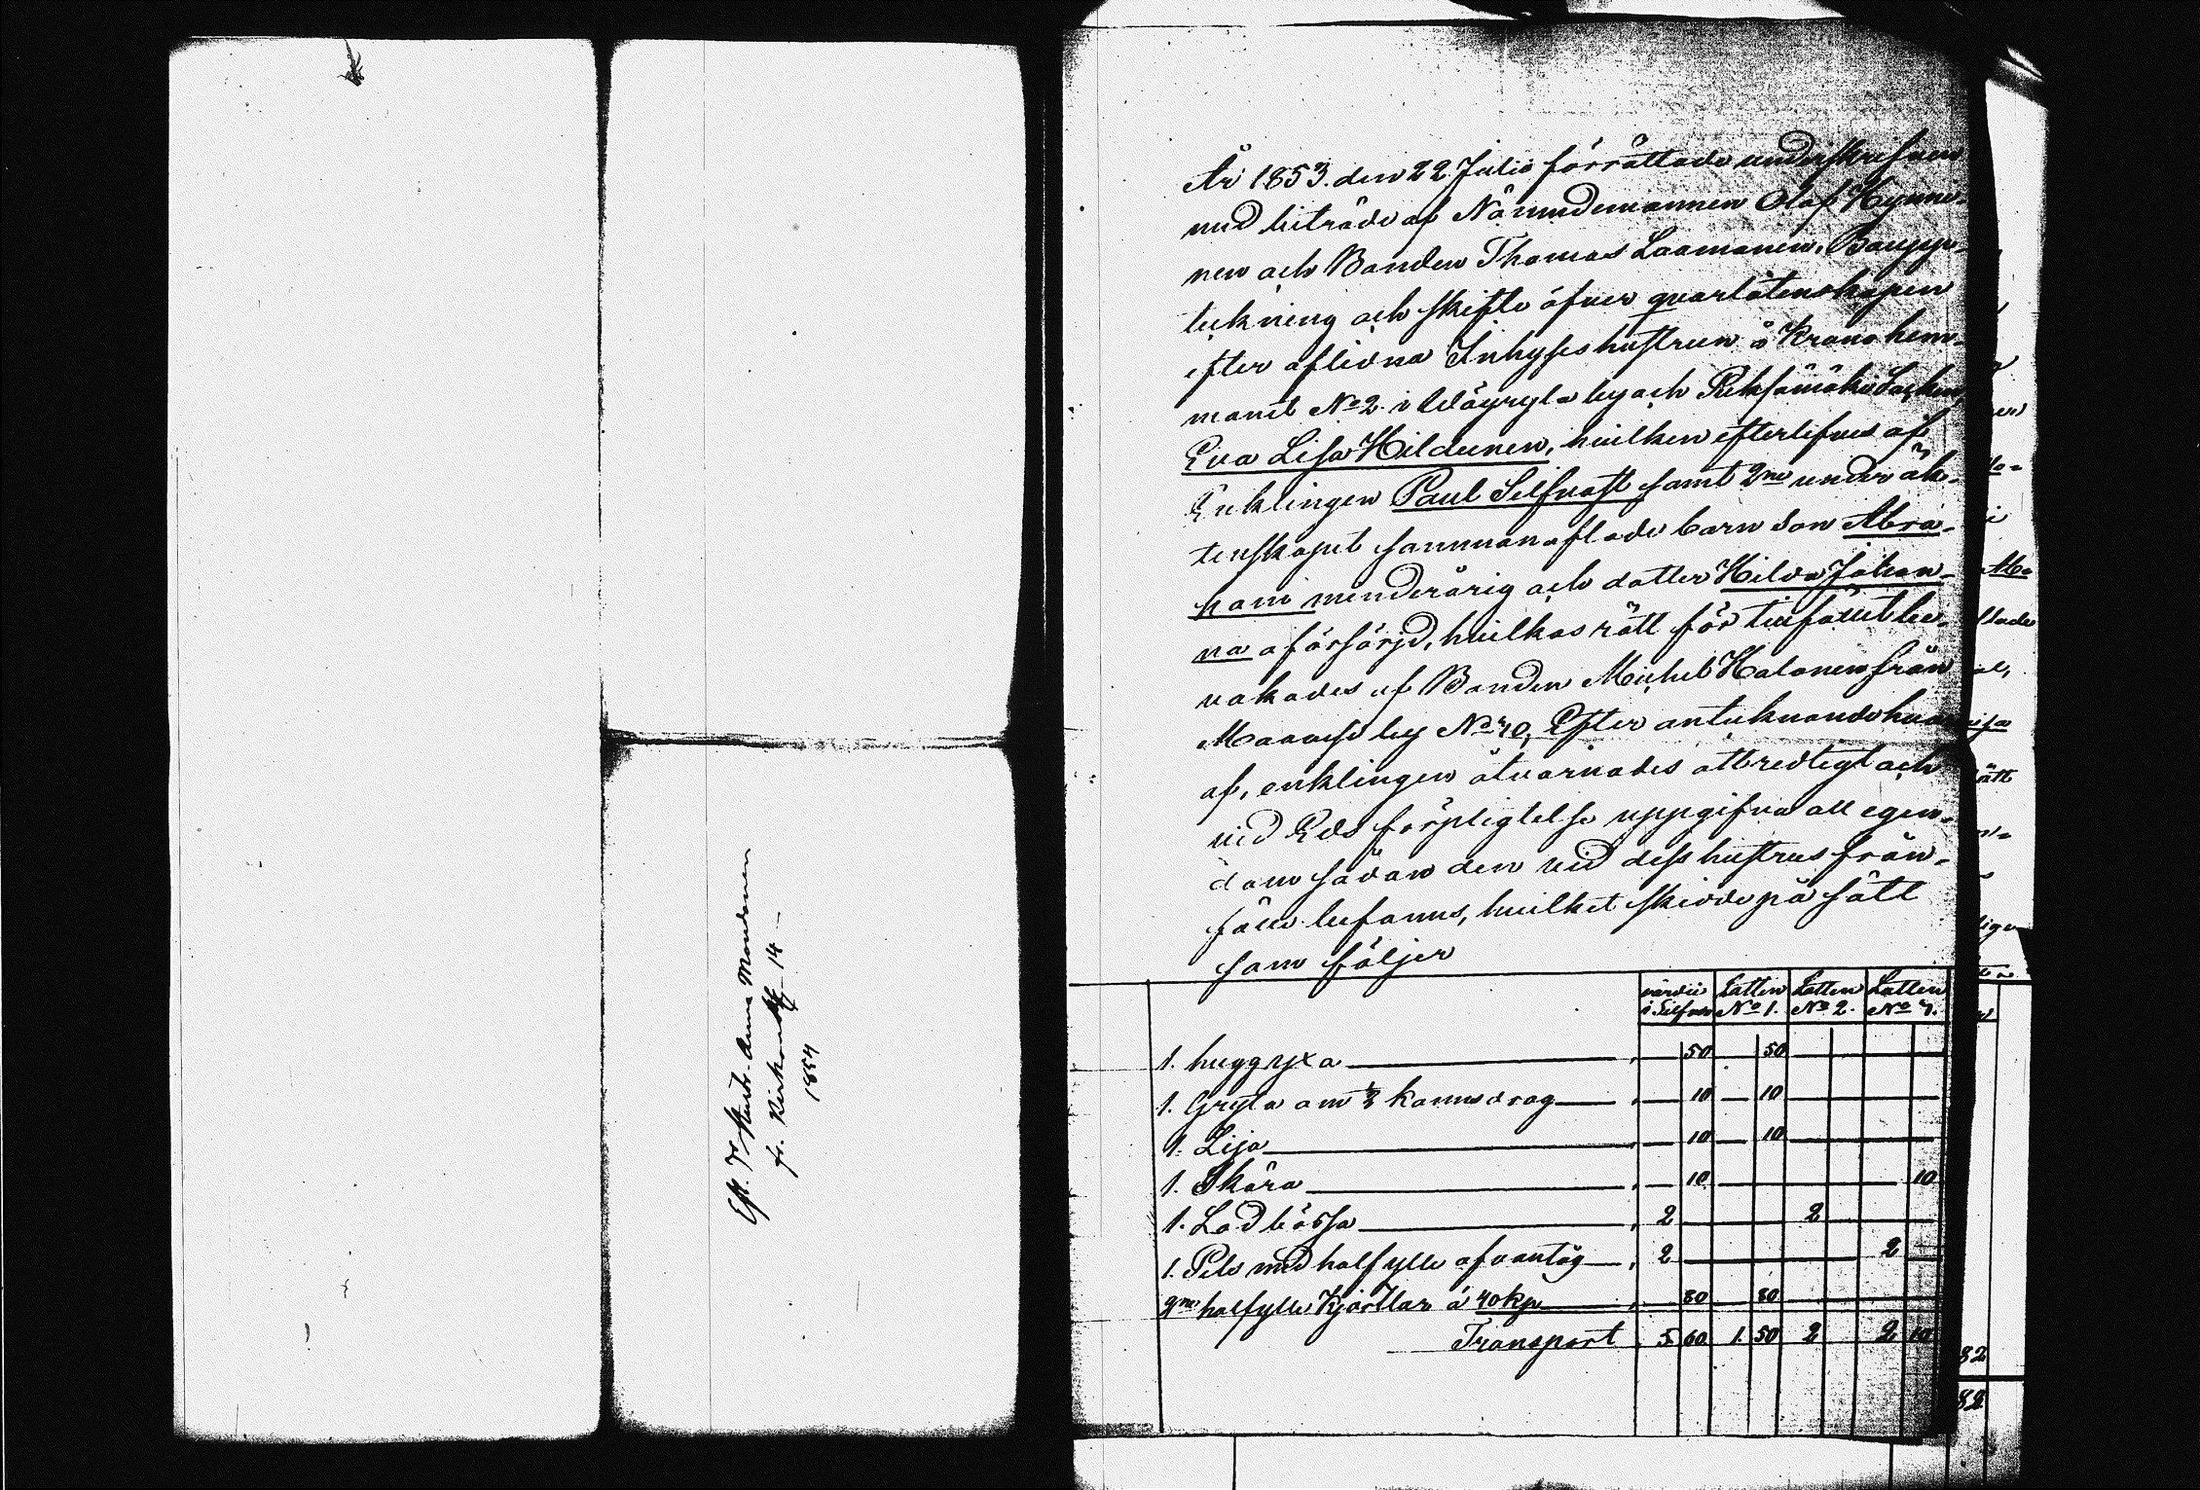 Eft. Hust. Anna Manninen
fr. Kirkonk. 14
1854
År 1853. den 22 Julii förrättade underskrifven
med biträde af Nämndemannen Olof Hynni-
nen och Bonden Thomas Laamanen, Boupp-
teckning och skifte öfver qvarlåtenskapen
efter aflidna Inhyses hustrun å Krono hem-
manet No 2 i Wäyrylä by och Pieksämäki Socken,
Eva Lisa Hildunen, hvilken efterlefves af
Enklingen Paul Silfvast samt 2ne under äk-
tenskapet sammanaflade barn Son Abra-
ham minderårig och dotter Hilda Johan-
na oförsörjd, hvilkas rätt för tillfället be-
vakades af Bonden Michel Halonen från
Maavesi by No 10, Efter antecknande häraf
af, enklingen åtvarnades att redligt och
vid Eds förpligtelse uppgifva all egen-
dom sådan den vid dess hustrus från-
fälle befanns, hvilket skedde på sätt
som följer
värdie i Silfver Lotten No 1. Lotten No 2. Lotten No 3.
1. huggyxa 50 50
1. Gryta om 3 kannor drag 10 10
1. Lija 10 10
1. Skära 10 10
1. Lodbössa 2 2
1. Pels med halfylle afvantög 2 2
2ne halfylle Kjortlar á 40 kp 80 80
Transport 5 60 1. 50 2 2 10
82
82